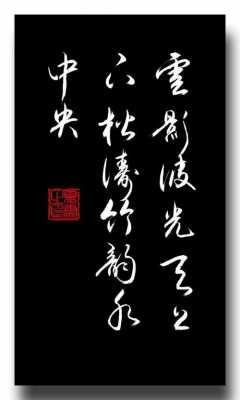 雲影波光天上
下松濤竹韻水
中央